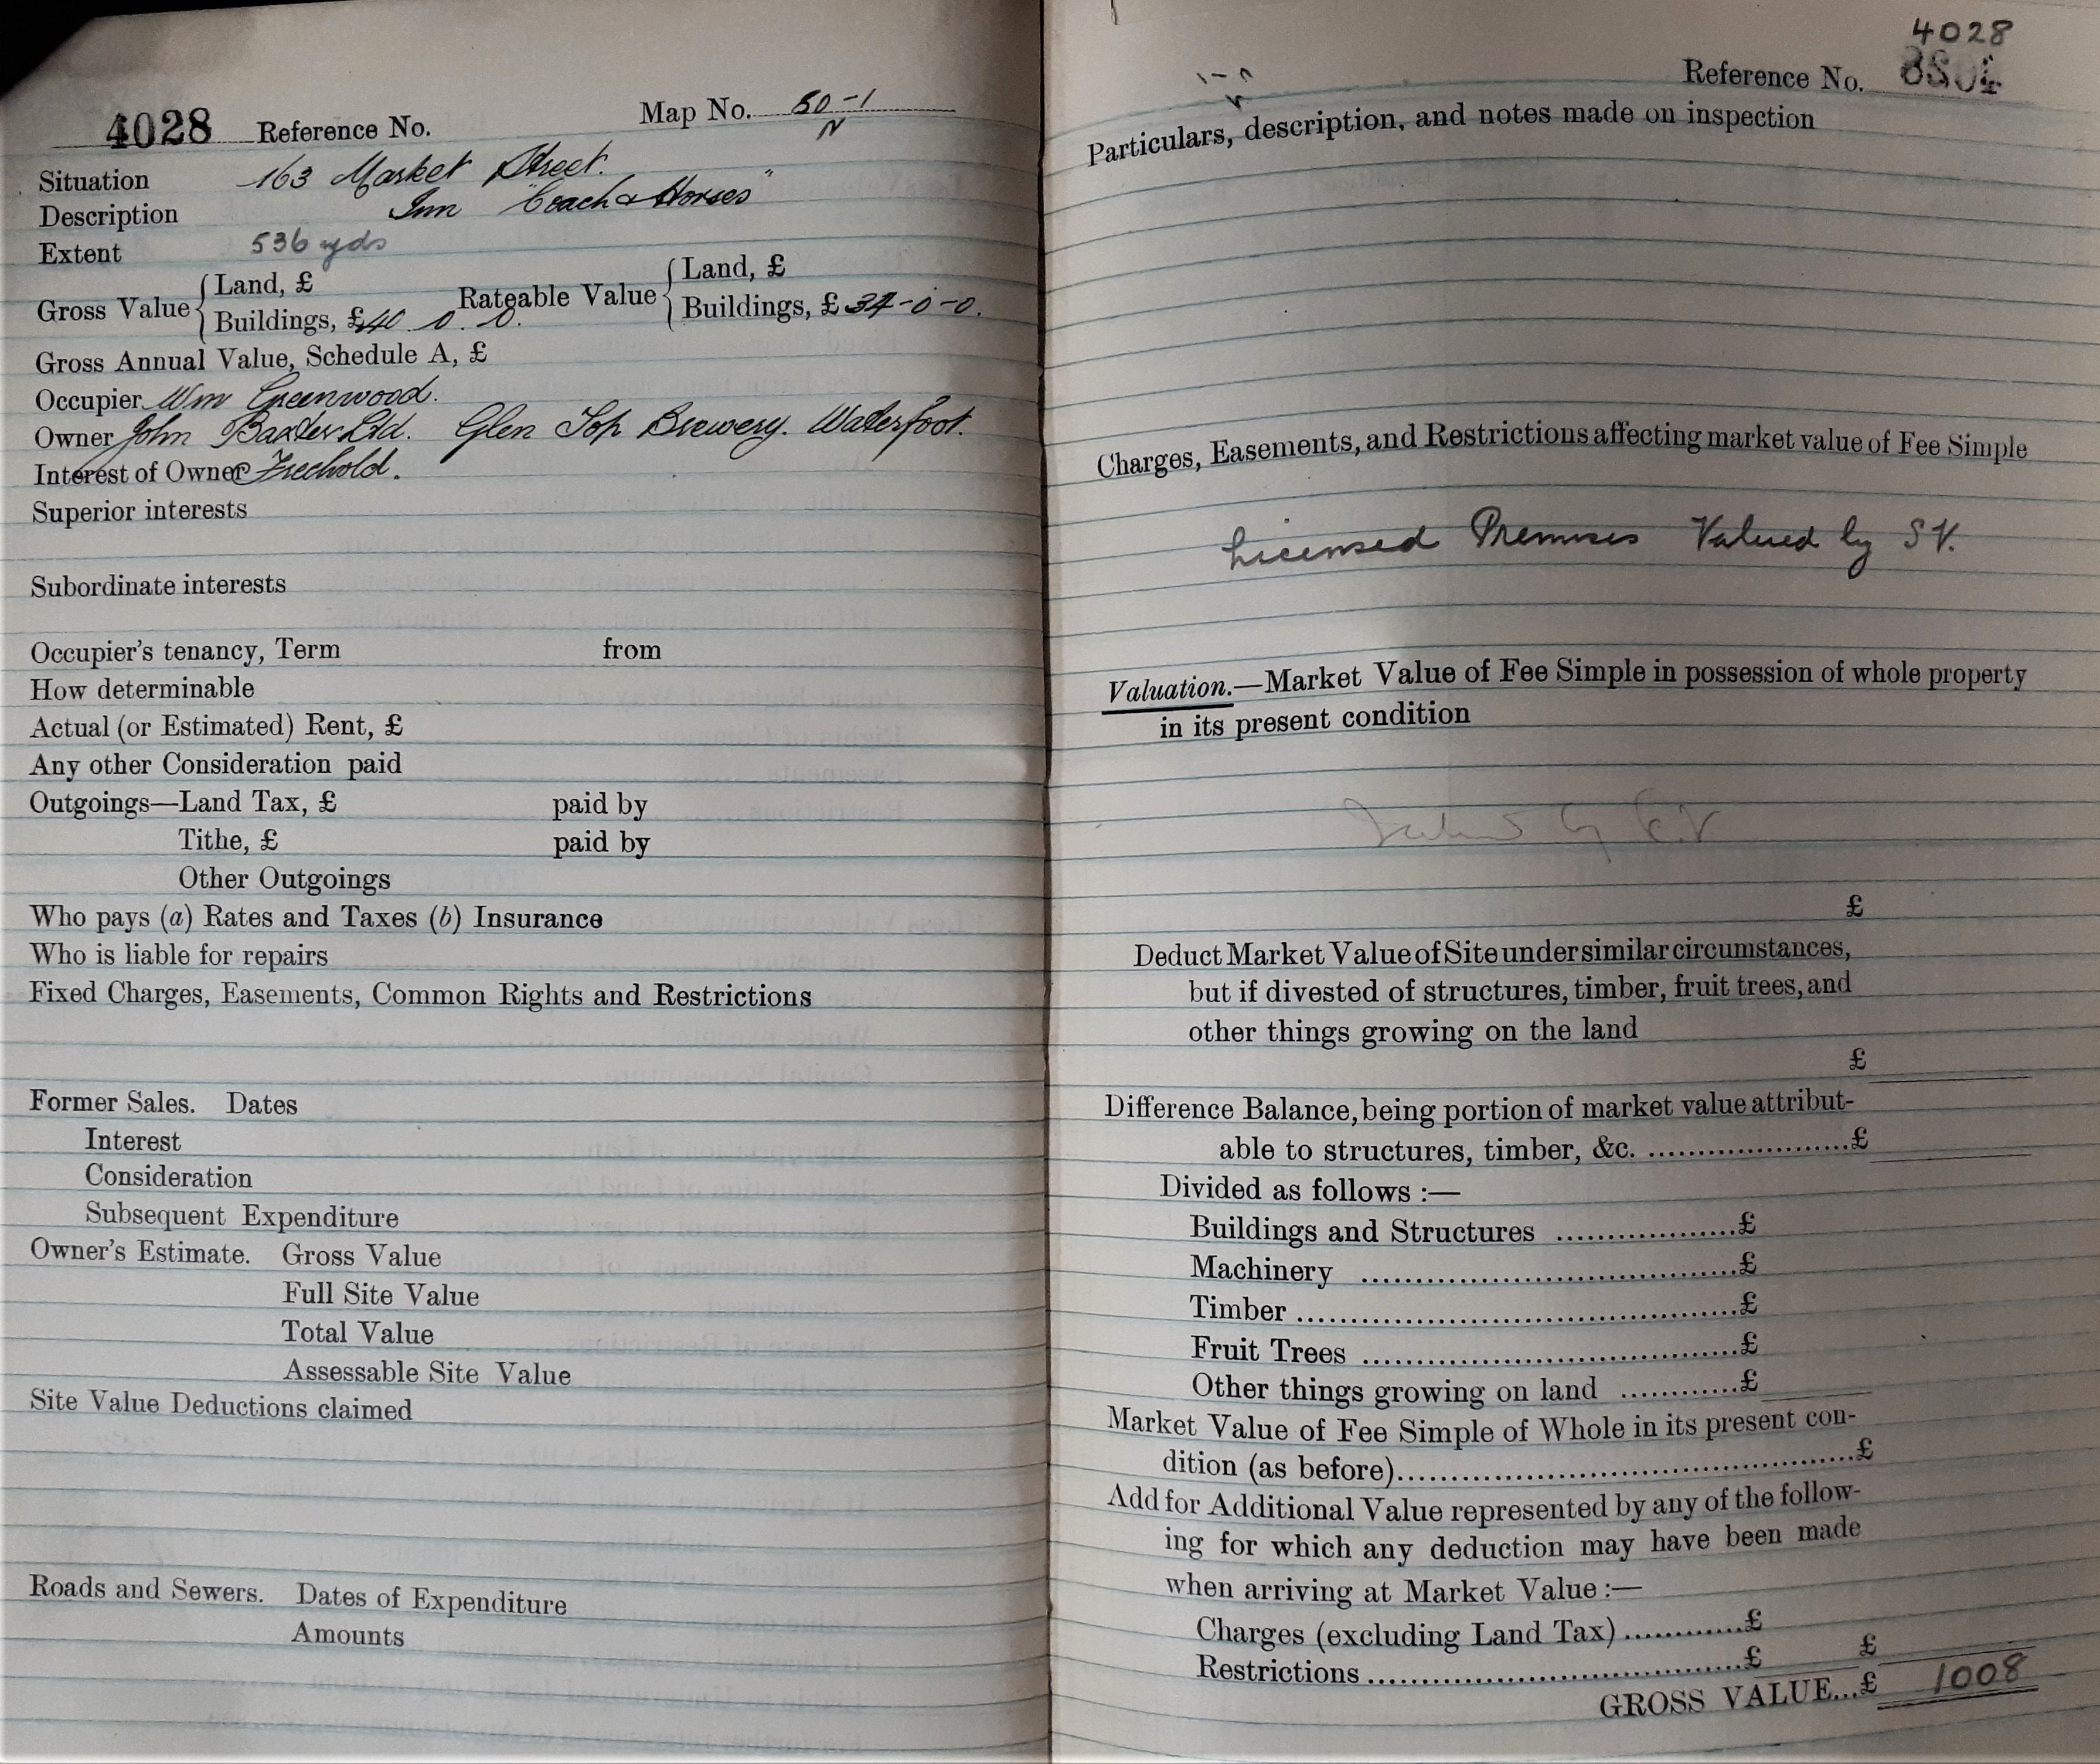 4028 Reference No. Map No. 50-1
N
Situation 163 Market Street.
Description Inn "Coach & Horses"
Extent 536 yds
Gross Value { Land, £
Buildings, £40 . 0 . 0. Rateable Value { Land, £
Buildings, £ 34-0-0.
Gross Annual Value, Schedule A, £
Occupier Wm Greenwood.
Owner John Baxter Ltd. Glen Top Brewery. Waterfoot.
Interest of Owner Freehold.
Superior interests
Subordinate interests
Occupier's tenancy, Term from
How determinable
Actual (or Estimated) Rent, £
Any other Consideration paid
Outgoings—Land Tax, £ paid by
Tithe, £ paid by
Other Outgoings
Who pays (a) Rates and Taxes (b) Insurance
Who is liable for repairs
Fixed Charges, Easements, Common Rights and Restrictions
Former Sales. Dates
Interest
Consideration
Subsequent Expenditure
Owner's Estimate. Gross Value
Full Site Value
Total Value
Assessable Site Value
Site Value Deductions claimed
Roads and Sewers. Dates of Expenditure
Amounts
4028
Reference No.
Particulars, description, and notes made on inspection
Charges, Easements, and Restrictions affecting market value of Fee Simple
Licensed Premises Valued by S V.
Valuation.—Market Value of Fee Simple in possession of whole property
in its present condition
Valued by S.V
£
Deduct Market Value of Site under similar circumstances,
but if divested of structures, timber, fruit trees, and
other things growing on the land
£
Difference Balance, being portion of market value attribut-
able to structures, timber, &c. ....................£
Divided as follows :—
Buildings and Structures ..................£
Machinery ......................................£
Timber .............................................£
Fruit Trees ......................................£
Other things growing on land ............£
Market Value of Fee Simple of Whole in its present con-
dition (as before)...............................................£
Add for Additional Value represented by any of the follow-
ing for which any deduction may have been made
when arriving at Market Value :—
Charges (excluding Land Tax) ............£
Restrictions ......................................£ £
GROSS VALUE...£ 1008